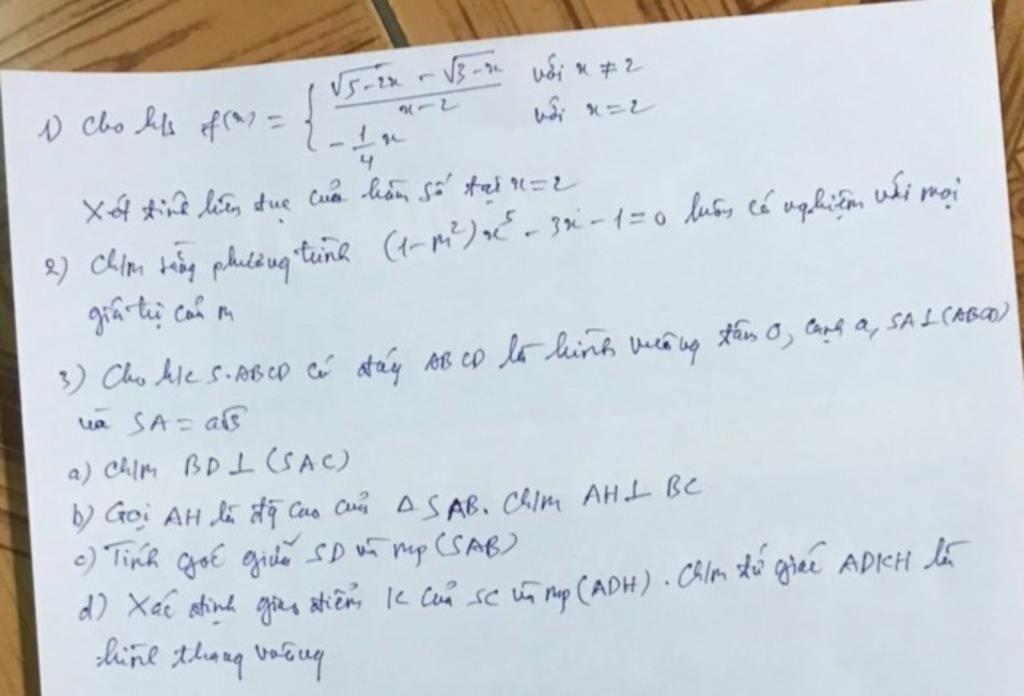 1) Cho h/s f(x) = { (√5-2x - √3-x)/(x-2) với x ≠ 2
-1/4 x với x = 2
Xét tính liên tục của hàm số tại x=2
2) Ch/m rằng phương trình (1-m²)x⁵ - 3x - 1 = 0 luôn có nghiệm với mọi
giá trị của m
3) Cho h/c S.ABCD có đáy ABCD là hình vuông tâm O, cạnh a, SA⊥(ABCD)
và SA = a√3
a) Ch/m BD⊥(SAC)
b) Gọi AH là đg cao của ΔSAB. Ch/m AH⊥BC
c) Tính góc giữa SD và mp(SAB)
d) Xác định giao điểm K của SC và mp(ADH). Ch/m tứ giác ADKH là
hình thang vuông